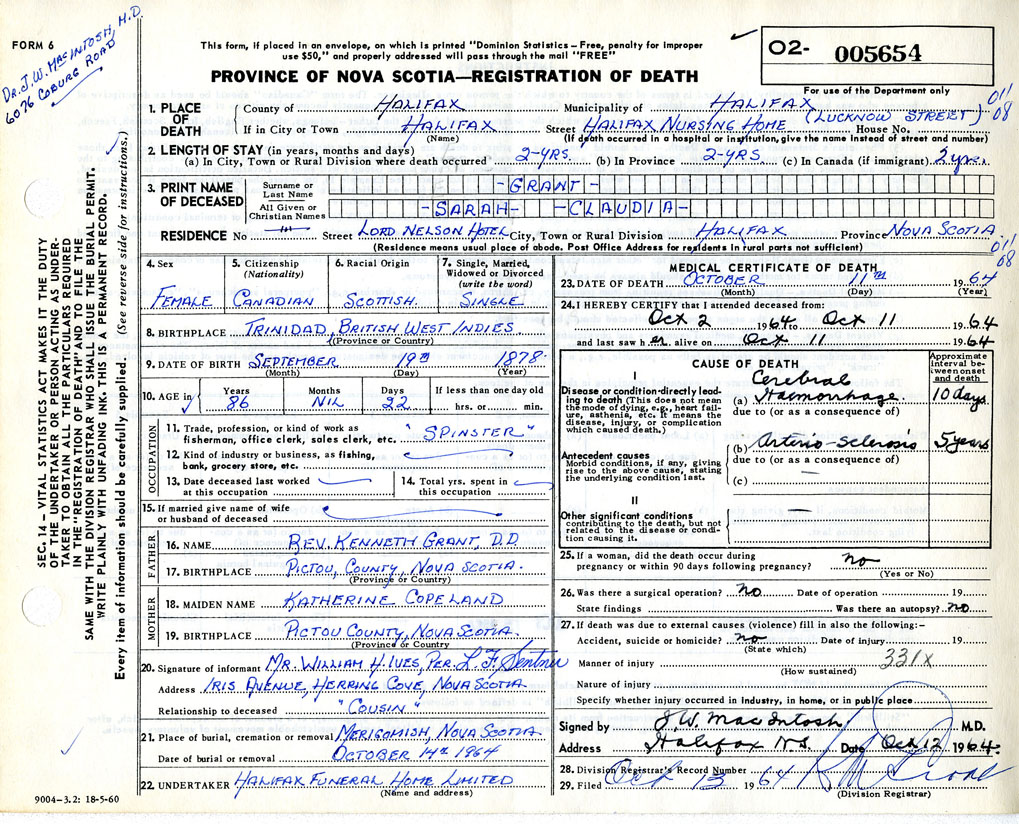 FORM 6
DR. J. W. MACINTOSH, M.D.
6076 COBURG ROAD
This form, if placed in an envelope, on which is printed "Dominion Statistics – Free, penalty for improper
use $50," and properly addressed will pass through the mail "FREE"
PROVINCE OF NOVA SCOTIA—REGISTRATION OF DEATH
O2- 005654
For use of the Department only
011
08
1. PLACE OF DEATH
County of HALIFAX Municipality of HALIFAX
(LUCKNOW STREET)
If in City or Town HALIFAX Street HALIFAX NURSING HOME House No.
(Name) (If death occurred in a hospital or institution, give the name instead of street and number)
2. LENGTH OF STAY (in years, months and days)
(a) In City, Town or Rural Division where death occurred 2-YRS. (b) In Province 2-YRS (c) In Canada (if immigrant) 2 yrs.
3. PRINT NAME OF DECEASED
Surname or Last Name -GRANT-
All Given or Christian Names -SARAH- -CLAUDIA-
RESIDENCE No "" Street LORD NELSON HOTEL City, Town or Rural Division HALIFAX Province NOVA SCOTIA
(Residence means usual place of abode. Post Office Address for residents in rural parts not sufficient)
011
08
4. Sex
FEMALE
5. Citizenship
(Nationality)
CANADIAN
6. Racial Origin
SCOTTISH.
7. Single, Married,
Widowed or Divorced
(write the word)
SINGLE
8. BIRTHPLACE TRINIDAD, BRITISH WEST INDIES
(Province or Country)
9. DATE OF BIRTH SEPTEMBER 19TH 1878.
(Month) (Day) (Year)
10. AGE in Years Months Days If less than one day old
86 NIL 22 hrs. or min.
OCCUPATION
11. Trade, profession, or kind of work as
fisherman, office clerk, sales clerk, etc. "SPINSTER"
12. Kind of industry or business, as fishing,
bank, grocery store, etc.
13. Date deceased last worked
at this occupation
14. Total yrs. spent in
this occupation
15. If married give name of wife
or husband of deceased
FATHER
16. NAME REV. KENNETH GRANT, D.D.
17. BIRTHPLACE PICTOU, COUNTY, NOVA SCOTIA.
(Province or Country)
MOTHER
18. MAIDEN NAME KATHERINE COPELAND
19. BIRTHPLACE PICTOU COUNTY, NOVA SCOTIA.
(Province or Country)
20. Signature of informant MR. WILLIAM H. IVES, PER. L. F. Sentner
Address IRIS AVENUE, HERRING COVE, NOVA SCOTIA
Relationship to deceased "COUSIN"
21. Place of burial, cremation or removal MERIGOMISH, NOVA SCOTIA
Date of burial or removal OCTOBER 14TH 1964
22. UNDERTAKER HALIFAX FUNERAL HOME LIMITED
(Name and address)
MEDICAL CERTIFICATE OF DEATH
23. DATE OF DEATH OCTOBER 11TH 1964
(Month) (Day) (Year)
24. I HEREBY CERTIFY that I attended deceased from:
Oct 2 1964 to Oct 11 1964
and last saw h er alive on Oct 11 1964
CAUSE OF DEATH
Approximate interval between onset and death
I
Disease or condition directly leading to death (This does not mean the mode of dying, e.g., heart failure, asthenia, etc. It means the disease, injury, or complication which caused death.)
(a) Cerebral Haemorrhage. 10 days.
due to (or as a consequence of)
Antecedent causes
Morbid conditions, if any, giving rise to the above cause, stating the underlying condition last.
(b) Arterio-Sclerosis 5 years
due to (or as a consequence of)
(c) —
II
Other significant conditions
contributing to the death, but not related to the disease or condition causing it.
25. If a woman, did the death occur during
pregnancy or within 90 days following pregnancy? no
(Yes or No)
26. Was there a surgical operation? no Date of operation 19
State findings Was there an autopsy? no
27. If death was due to external causes (violence) fill in also the following:–
Accident, suicide or homicide? no Date of injury 19
(State which)
331X
Manner of injury
(How sustained)
Nature of injury
Specify whether injury occurred in industry, in home, or in public place
Signed by J. W. MacIntosh M.D.
Address Halifax N.S. Date Oct 12 1964.
28. Division Registrar's Record Number
29. Filed Oct 13 1964
(Division Registrar)
SEC. 14 – VITAL STATISTICS ACT MAKES IT THE DUTY
OF THE UNDERTAKER OR PERSON ACTING AS UNDERTAKER TO OBTAIN ALL THE PARTICULARS REQUIRED
IN THE "REGISTRATION OF DEATH" AND TO FILE THE
SAME WITH THE DIVISION REGISTRAR WHO SHALL ISSUE THE BURIAL PERMIT.
WRITE PLAINLY WITH UNFADING INK. THIS IS A PERMANENT RECORD.
Every item of information should be carefully supplied. (See reverse side for instructions.)
9004–3.2: 18-5-60